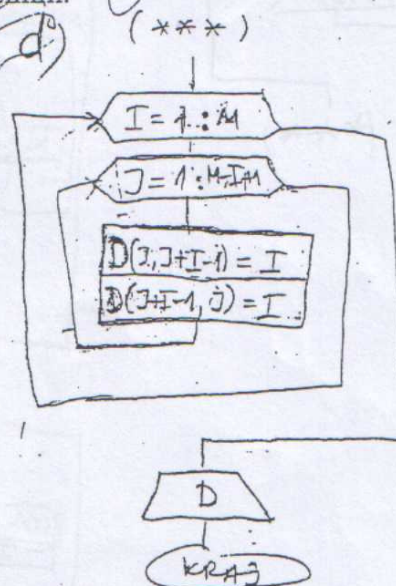 d)
(***)
I = 1 : M
J = 1 : M-I+1
D(J,J+I-1) = I
D(J+I-1,J) = I
D
KRAJ